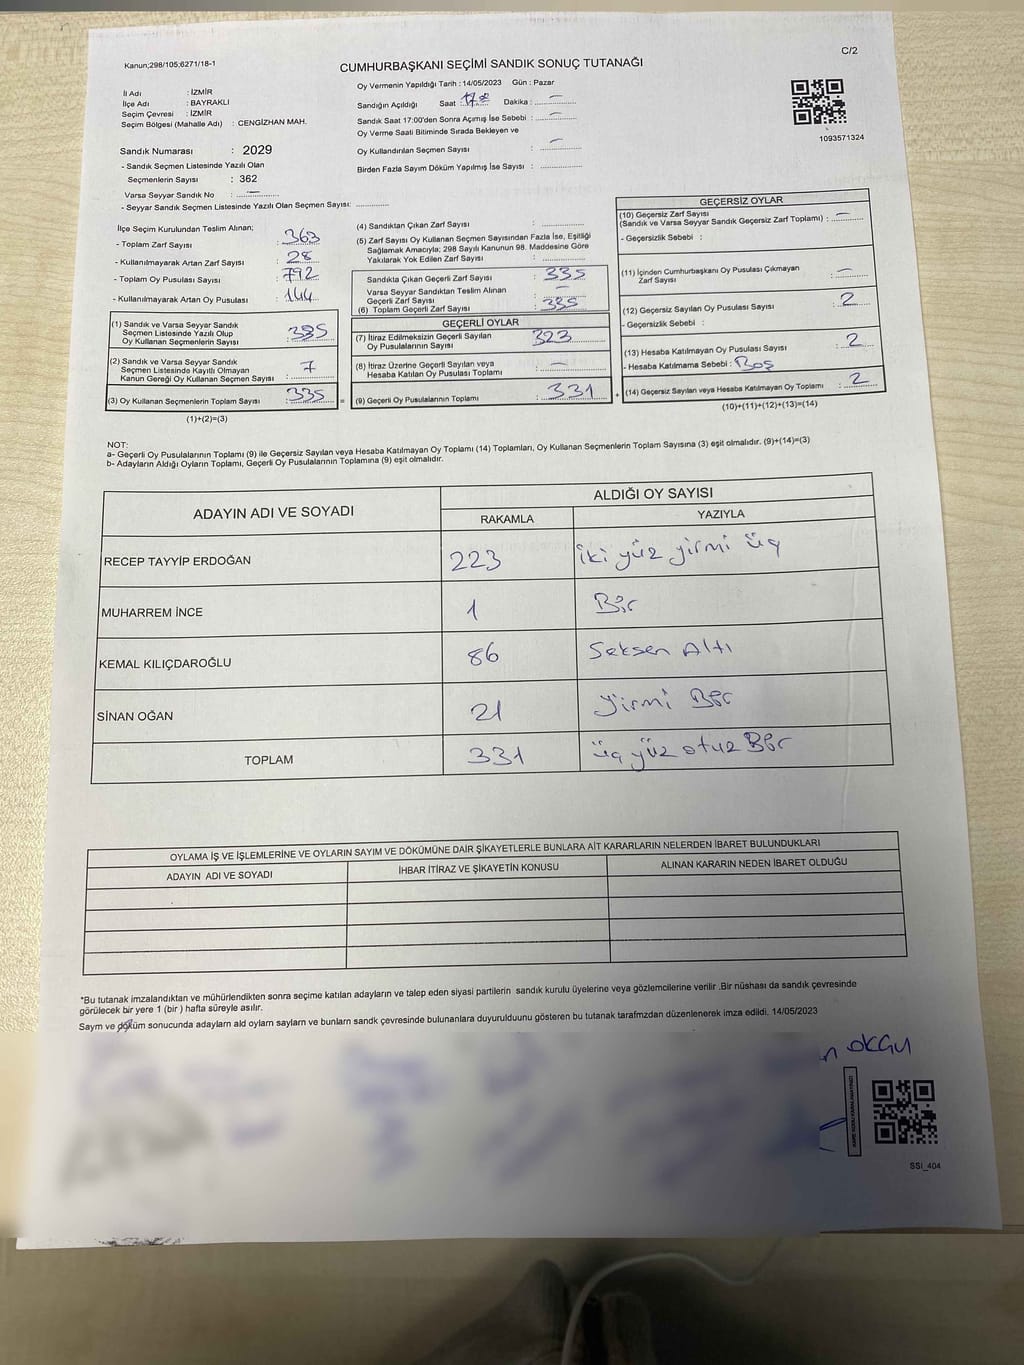 Kanun;298/105;6271/18-1
C/2
CUMHURBAŞKANI SEÇİMİ SANDIK SONUÇ TUTANAĞI
İl Adı : İZMİR
İlçe Adı : BAYRAKLI
Seçim Çevresi : İZMİR
Seçim Bölgesi (Mahalle Adı) : CENGİZHAN MAH.
Sandık Numarası : 2029
- Sandık Seçmen Listesinde Yazılı Olan
Seçmenlerin Sayısı : 362
Varsa Seyyar Sandık No : —
- Seyyar Sandık Seçmen Listesinde Yazılı Olan Seçmen Sayısı:
Oy Vermenin Yapıldığı Tarih : 14/05/2023 Gün : Pazar
Sandığın Açıldığı Saat : 17.00 Dakika : —
Sandık Saat 17:00'den Sonra Açımış İse Sebebi : —
Oy Verme Saati Bitiminde Sırada Bekleyen ve
Oy Kullandırılan Seçmen Sayısı —
Birden Fazla Sayım Döküm Yapılmış İse Sayısı :
1093571324
İlçe Seçim Kurulundan Teslim Alınan;
- Toplam Zarf Sayısı : 363
- Kullanılmayarak Artan Zarf Sayısı : 28
- Toplam Oy Pusulası Sayısı : 792
- Kullanılmayarak Artan Oy Pusulası : 144
(1) Sandık ve Varsa Seyyar Sandık
Seçmen Listesinde Yazılı Olup
Oy Kullanan Seçmenlerin Sayısı : 335
(2) Sandık ve Varsa Seyyar Sandık
Seçmen Listesinde Kayıtlı Olmayan
Kanun Gereği Oy Kullanan Seçmen Sayısı : 7
(3) Oy Kullanan Seçmenlerin Toplam Sayısı : 335
(1)+(2)=(3)
(4) Sandıktan Çıkan Zarf Sayısı :
(5) Zarf Sayısı Oy Kullanan Seçmen Sayısından Fazla İse, Eşitliği
Sağlamak Amacıyla; 298 Sayılı Kanunun 98. Maddesine Göre
Yakılarak Yok Edilen Zarf Sayısı :
Sandıkta Çıkan Geçerli Zarf Sayısı : 335
Varsa Seyyar Sandıktan Teslim Alınan
Geçerli Zarf Sayısı : —
(6) Toplam Geçerli Zarf Sayısı : 335
GEÇERLİ OYLAR
(7) İtiraz Edilmeksizin Geçerli Sayılan
Oy Pusulalarının Sayısı : 323
(8) İtiraz Üzerine Geçerli Sayılan veya
Hesaba Katılan Oy Pusulası Toplamı : —
= (9) Geçerli Oy Pusulalarının Toplamı : 331 +
GEÇERSİZ OYLAR
(10) Geçersiz Zarf Sayısı
(Sandık ve Varsa Seyyar Sandık Geçersiz Zarf Toplamı) : —
- Geçersizlik Sebebi :
(11) İçinden Cumhurbaşkanı Oy Pusulası Çıkmayan
Zarf Sayısı : —
(12) Geçersiz Sayılan Oy Pusulası Sayısı : 2
- Geçersizlik Sebebi :
(13) Hesaba Katılmayan Oy Pusulası Sayısı : 2
- Hesaba Katılmama Sebebi : Boş
(14) Geçersiz Sayılan veya Hesaba Katılmayan Oy Toplamı : 2
(10)+(11)+(12)+(13)=(14)
NOT:
a- Geçerli Oy Pusulalarının Toplamı (9) ile Geçersiz Sayılan veya Hesaba Katılmayan Oy Toplamı (14) Toplamları, Oy Kullanan Seçmenlerin Toplam Sayısına (3) eşit olmalıdır. (9)+(14)=(3)
b- Adayların Aldığı Oyların Toplamı, Geçerli Oy Pusulalarının Toplamına (9) eşit olmalıdır.
ADAYIN ADI VE SOYADI ALDIĞI OY SAYISI
RAKAMLA YAZIYLA
RECEP TAYYİP ERDOĞAN 223 iki yüz yirmi üç
MUHARREM İNCE 1 Bir
KEMAL KILIÇDAROĞLU 86 Seksen Altı
SİNAN OĞAN 21 Yirmi Bir
TOPLAM 331 üç yüz otuz Bir
OYLAMA İŞ VE İŞLEMLERİNE VE OYLARIN SAYIM VE DÖKÜMÜNE DAİR ŞİKAYETLERLE BUNLARA AİT KARARLARIN NELERDEN İBARET BULUNDUKLARI
ADAYIN ADI VE SOYADI İHBAR İTİRAZ VE ŞİKAYETİN KONUSU ALINAN KARARIN NEDEN İBARET OLDUĞU
*Bu tutanak imzalandıktan ve mühürlendikten sonra seçime katılan adayların ve talep eden siyasi partilerin sandık kurulu üyelerine veya gözlemcilerine verilir .Bir nüshası da sandık çevresinde
görülecek bir yere 1 (bir ) hafta süreyle asılır.
Saym ve döküm sonucunda adaylarn ald oylarn saylarn ve bunlarn sandk çevresinde bulunanlara duyurulduunu gösteren bu tutanak tarafmzdan düzenlenerek imza edildi. 14/05/2023
SSİ_404